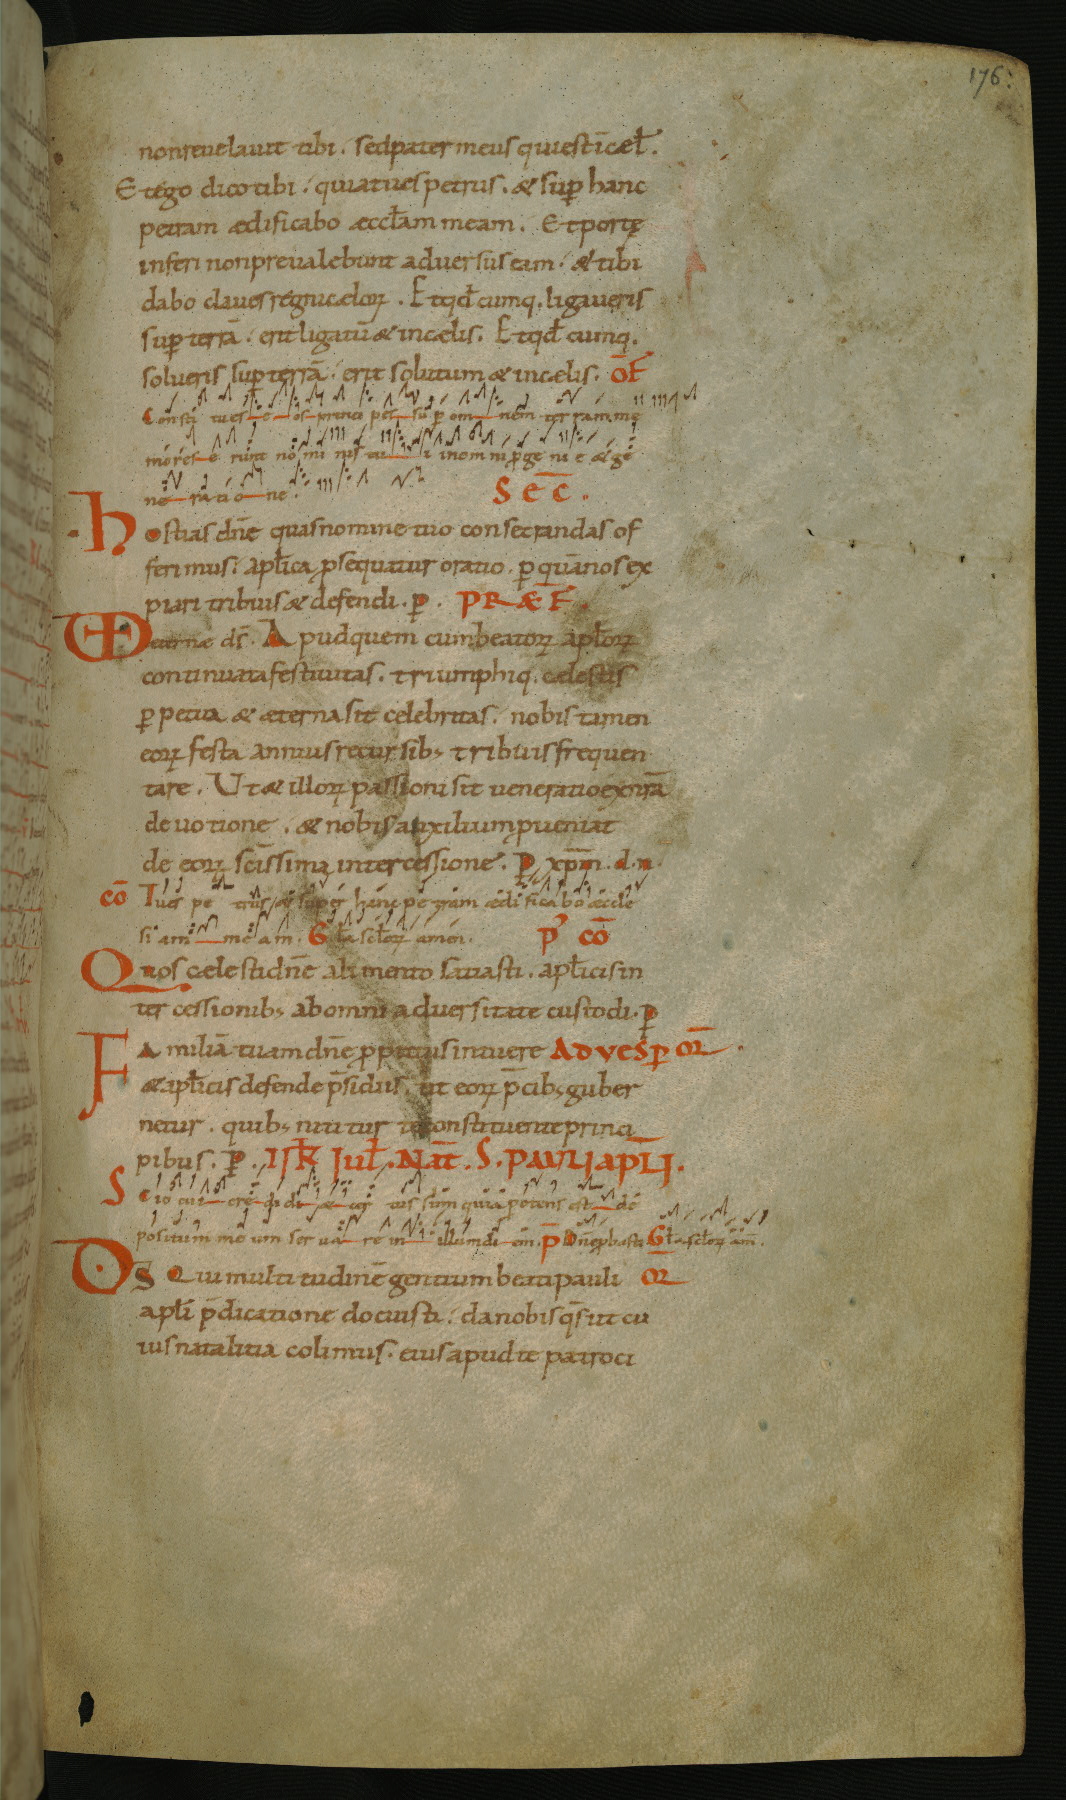 176:
non reuelauit tibi. sed pater meus qui est i̅ cæl̅.
Et ego dico tibi. quia tu es petrus. & sup̱ hanc
petram ædificabo æccl̅am meam. Et portę
inferi non preualebunt aduersus eam. & tibi
dabo claues regni cælorꝝ. Et qd̅ cumq. ligaueris
sup̱ terrā. erit ligatū & in cælis. Et qd̅ cumq.
solueris sup̱ terrā. erit solutum & in cælis. OF̅
Consti tues e os princi pes sup̱ om nem ter ram me
mores e runt no mi nis tu i in omni p̱ge ni e & ge
ne ra ti o ne. SEC̅.
Hostias dn̅e quas nomine tuo consecrandas of
ferimus. apl̅ica ꝓsequatur oratio. p̱ quā nos ex
piari tribuis & defendi. p̱. PRÆF̅.
æterne ds̅. Apud quem cum beatorꝝ apl̅orꝝ
continuata festiuitas. triumphiq. cælestis
p̱petua & æterna sit celebritas. nobis tamen
eorꝝ festa annuis recursib; tribuis frequen
tare. Ut & illorꝝ passioni sit ueneratio ex nrā
deuotione. & nobis auxilium ꝓueniat
de eorꝝ scis̅sima intercessione. P̱ xp̅m. d. n.
CO̅ Tu es pe trus & super hanc petram ædificabo æccle
si am me am. Gl̅a scl̅orꝝ amen. P̕ CO̅
Quos cælesti dn̅e alimento satiasti. apl̅icis in
tercessionib; ab omni aduersitate custodi. p̱
Familiā tuam dn̅e ꝓpitius intuere AD VESP̱ OR̅.
& apl̅icis defende p̅sidiis. ut eorꝝ p̅cib; guber
netur. quib; nititur te constituente princi
pibus. P̱. II K̅ Iul̅. NAT̅. S. PAVLI APL̅I.
Scio cui credidi & cer tus sum quia potens est de
positum meum seruare in illum diem. P̅ Dn̅e ꝓbasti Gl̅a scl̅orꝝ am̅.
DS Qui multitudinē gentium beati pauli OR̅
apl̅i p̅dicatione docuisti. da nobis qs̅ ut cu
ius natalitia colimus. eius apud te patroci